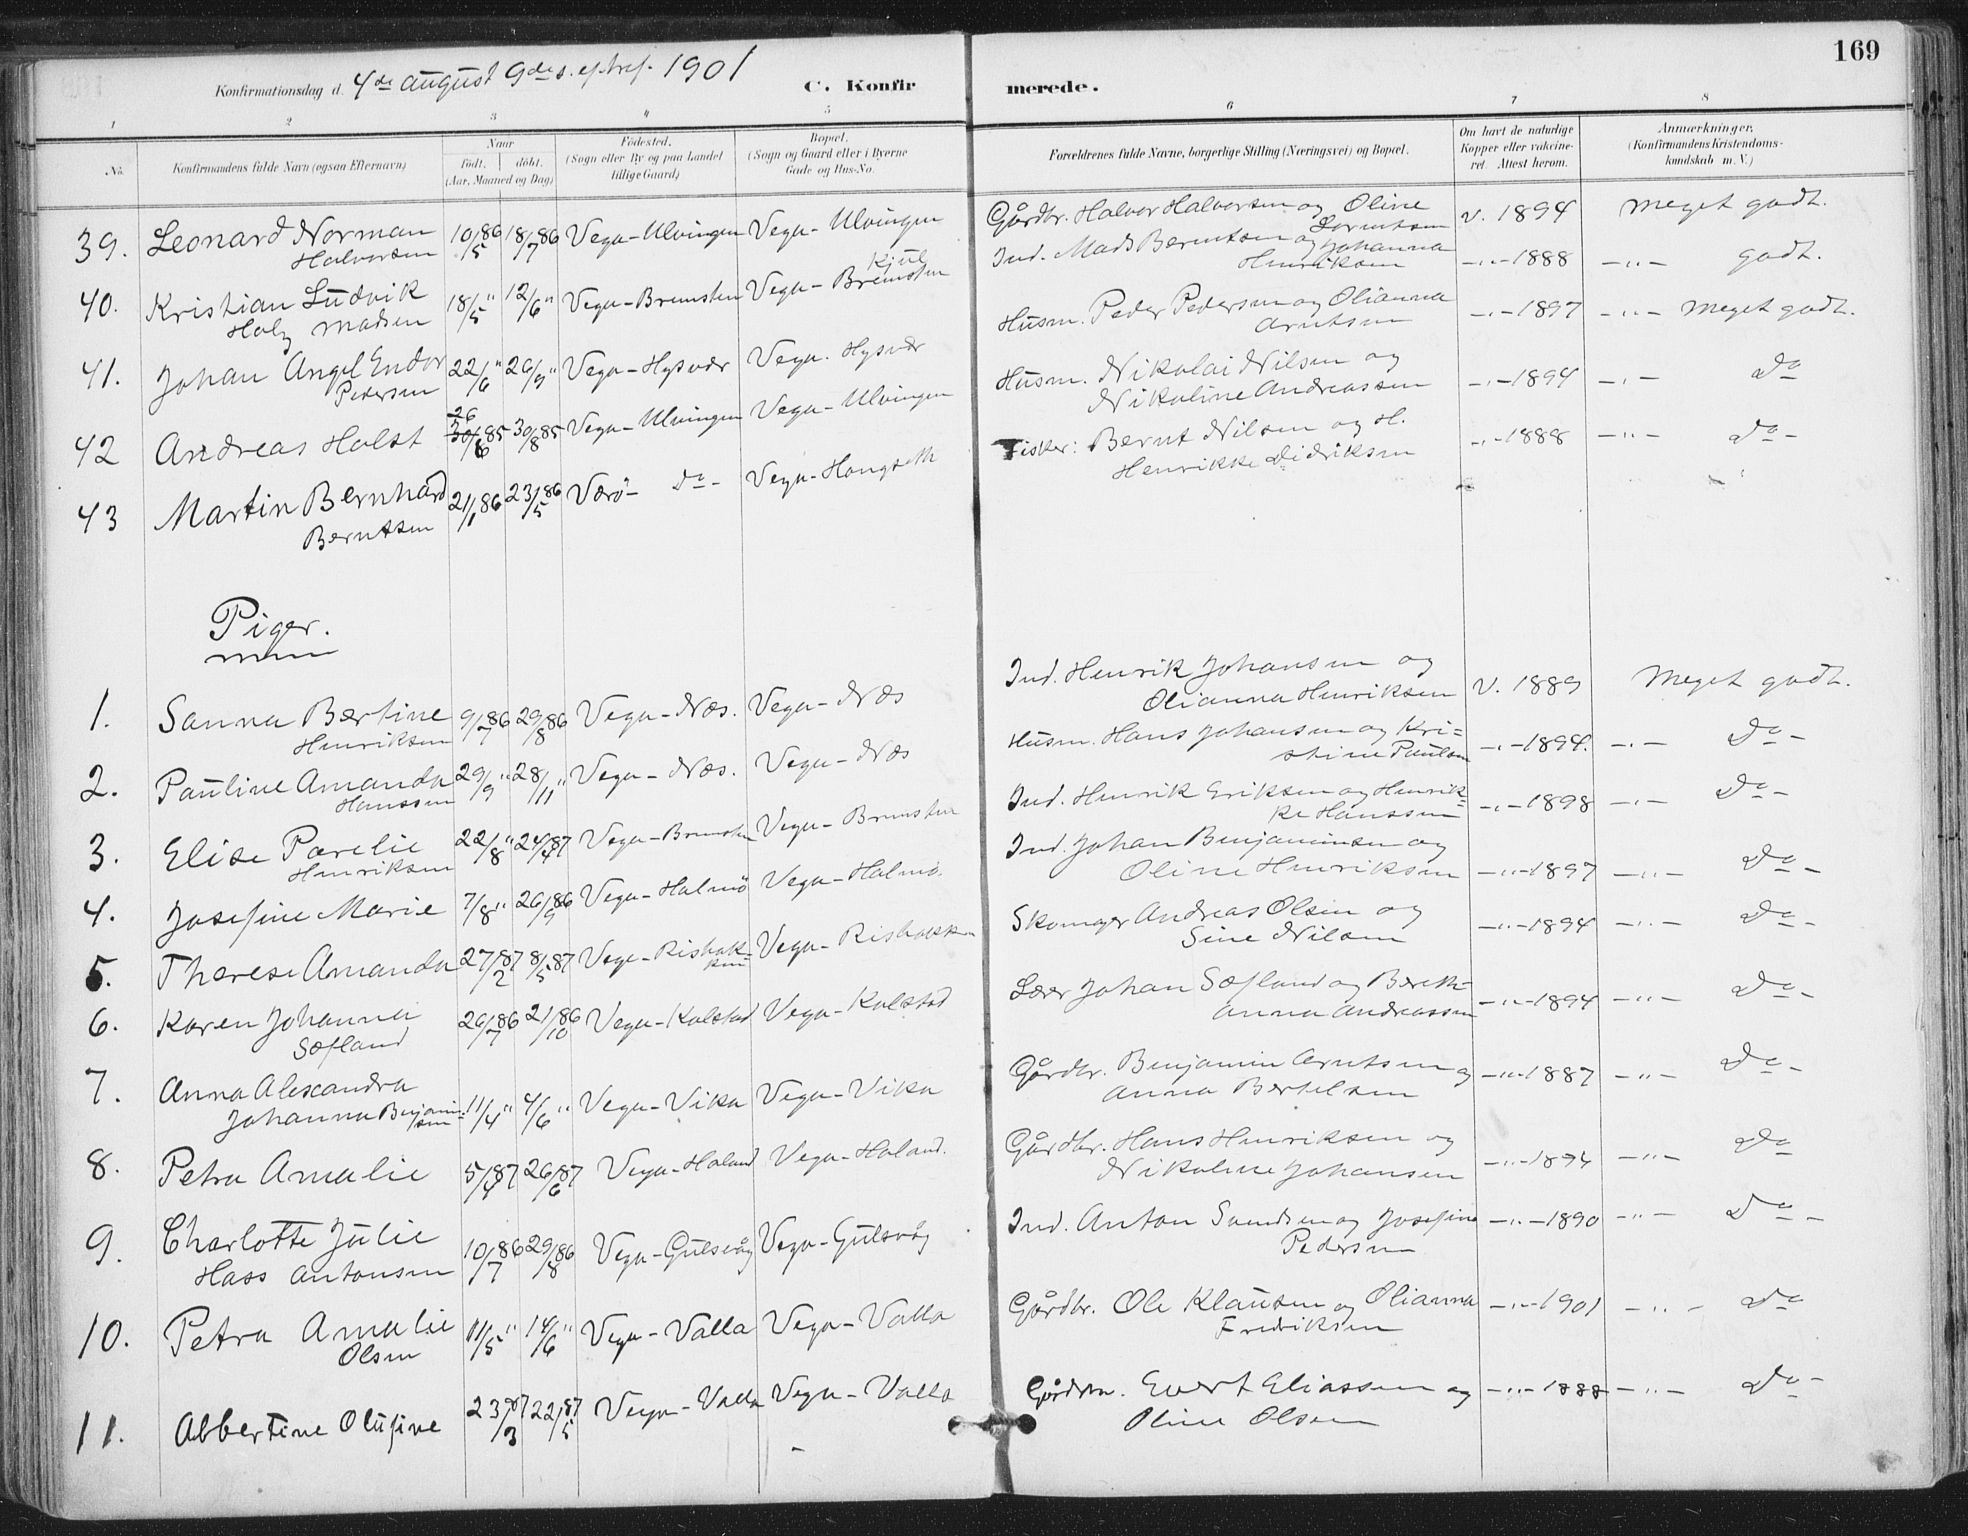 169
Konfirmationsdag d. 4de august 9de s. ef. tref. 1901
C. Konfirmerede.
1 2 3 4 5 6 7 8
No.
Konfirmandens fulde Navn (ogsaa Efternavn)
Naar
født. døbt.
(Aar, Maaned og Dag)
Fødested.
(Sogn eller By og paa Landet
tillige Gaard)
Bopæl.
(Sogn og Gaard eller i Byerne
Gade og Hus-No.
Forældrenes fulde Navne, borgerlige Stilling (Næringsvei) og Bopæl.
Om havt de naturlige
Kopper eller vakcine-
ret. Attest herom.
Anmærkninger.
(Konfirmandens Kristendoms-
kundskab m. V.)
39. Leonard Norman 10/5 86 18/7 86 Vega-Ulvingen Vega-Ulvingen Gårdbr. Halvor Halvorsen og Oline v. 1894 Meget godt.
Halvorsen Berntsen
40. Kristian Ludvik 18/5 " 12/6 " Vega-Bremsten Vega-Bremsten Ind. Mads Berntsen og Johanna -"- 1888 -"- godt.
Holz Madsen Kjul Henriksen
41. Johan Angel Endor 22/6 " 26/9 " Vega-Hysvær Vega. Hysvær Husm. Peder Pedersen og Olianna -"- 1897 -"- Meget godt.
Pedersen Arntsen
42 Andreas Holst 26/6 85 30/8 85 Vega-Ulvingen Vega-Ulvingen Husm. Nikolai Nilsen og -"- 1894 -"- Do
Nikoline Andreassen
43 Martin Bernhard 21/1 86 23/5 86 Værö- Do- Vega-Hongseth Fisker: Bernt Nilsen og H. -"- 1888 -"- Do-
Berntsen Henrikke Didriksen
Piger.
1. Sanna Bertine 9/7 86 29/8 86 Vega-Næs. Vega-Næs Ind. Henrik Johansen og V. 1889 Meget godt.
Henriksen Olianna Henriksen
2. Pauline Amanda 29/9 " 28/11 " Vega-Næs. Vega-Næs Husm. Hans Johansen og Kri= -"- 1894. -"- Do-
Hanssen stine Paulsen
3. Elise Parelie 22/8 " 24/4 87 Vega-Bremsten Vega-Bremsten Ind. Henrik Eriksen og Henrik= -"- 1898 -"- Do-
Henriksen ke Hanssen
4. Josefine Marie 7/8 " 26/9 86 Vega-Halmö Vega-Halmö. Ind. Johan Benjaminsen og -"- 1897 -"- Do-
Oline Henriksen
5. Therese Amanda 27/2 87 8/5 87 Vega-Rishak= Vega-Rishakken Skomager Andreas Olsen og -"- 1894 -"- Do-
ken Sine Nilsen
6. Karen Johanna 26/7 86 21/10 86 Vega-Kolstad Vega-Kolstad Lærer Johan Sæfland og Bereth- -"- 1894 -"- Do-
Sæfland anna Andreassen
7. Anna Alexandra 11/4 " 4/6 " Vega-Vika Vega-Vika Gårdbr. Benjamin Arntsen og -"- 1887 -"- Do-
Johanna Benjamin= Anna Bertelsen
sen
8. Petra Amalie 5/4 87 26/6 87 Vega-Holand Vega-Holand. Gårdbr. Hans Henriksen og -"- 1894 -"- Do
Nikoline Johansen
9. Charlotte Julie 10/7 86 29/8 86 Vega-Gulsvåg Vega-Gulsvåg Ind. Anton Svendsen og Josefine -"- 1890 -"- Do-
Hass Antonsen Pedersen
10. Petra Amalie 11/5 " 14/6 " Vega-Valla Vega-Valla Gårdbr. Ole Klausen og Olianna -"- 1901 -"- Do
Olsen Fredriksen
11. Abbertine Olufine 23/3 87 22/5 87 Vega-Valla Vega-Valla Gårdbr. Evert Eliassen og -"- 1888 -"- Do-
Oline Olsen